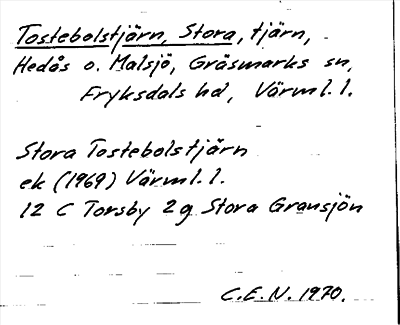 Tostebolstjärn, Stora, tjärn,
Hedås o. Malsjö, Gräsmarks sn,
Fryksdals hd, Värml. l.
Stora Tostebolstjärn
ek (1969) Värml. l.
12 C Torsby 2 g Stora Gransjön
C.E.N. 1970.